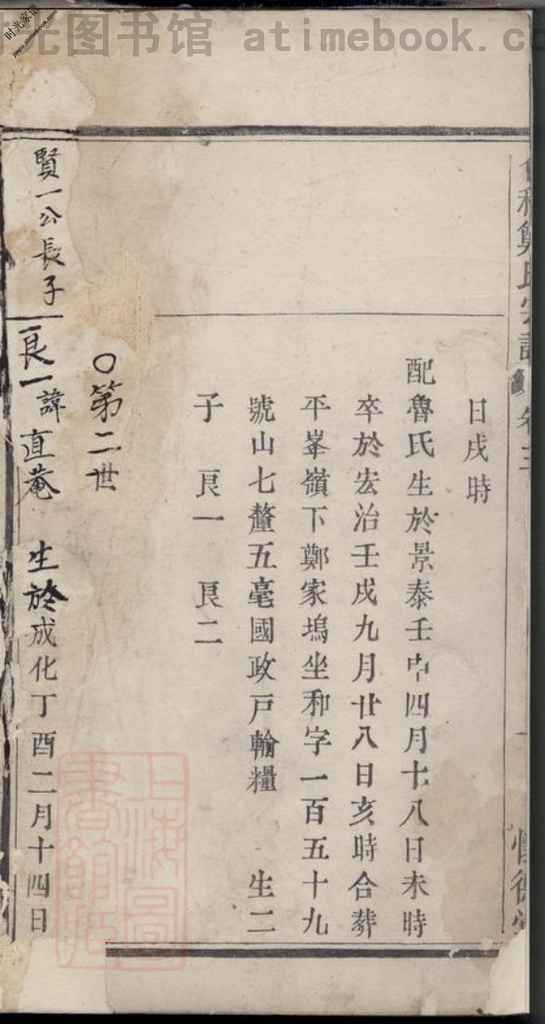 时光图书馆 atimebook.co
时光家谱
鄭氏宗譜 卷三
日戌時
配魯氏生於景泰壬申四月十八日未時
卒於宏治壬戌九月廿八日亥時合葬
平峯嶺下鄭家塢坐和字一百五十九
號山七釐五毫國政戸輸糧 生二
子 良一 良二
〇第二世
賢一公長子
良一諱直菴 生於成化丁酉二月十四日
上海圖書館藏